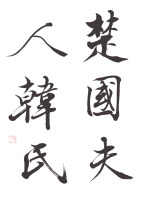 楚國夫
人韓氏